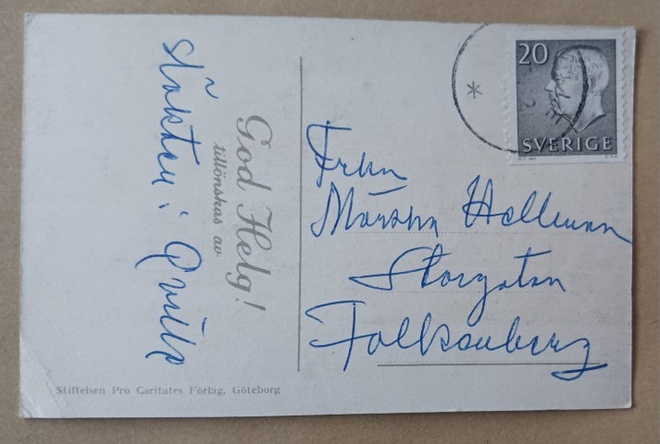 God Helg!
tillönskas av
släkten i Qville
Stiftelsen Pro Caritates Förlag, Göteborg
20
SVERIGE
Fru
Hellman
Storgatan
Falkenberg